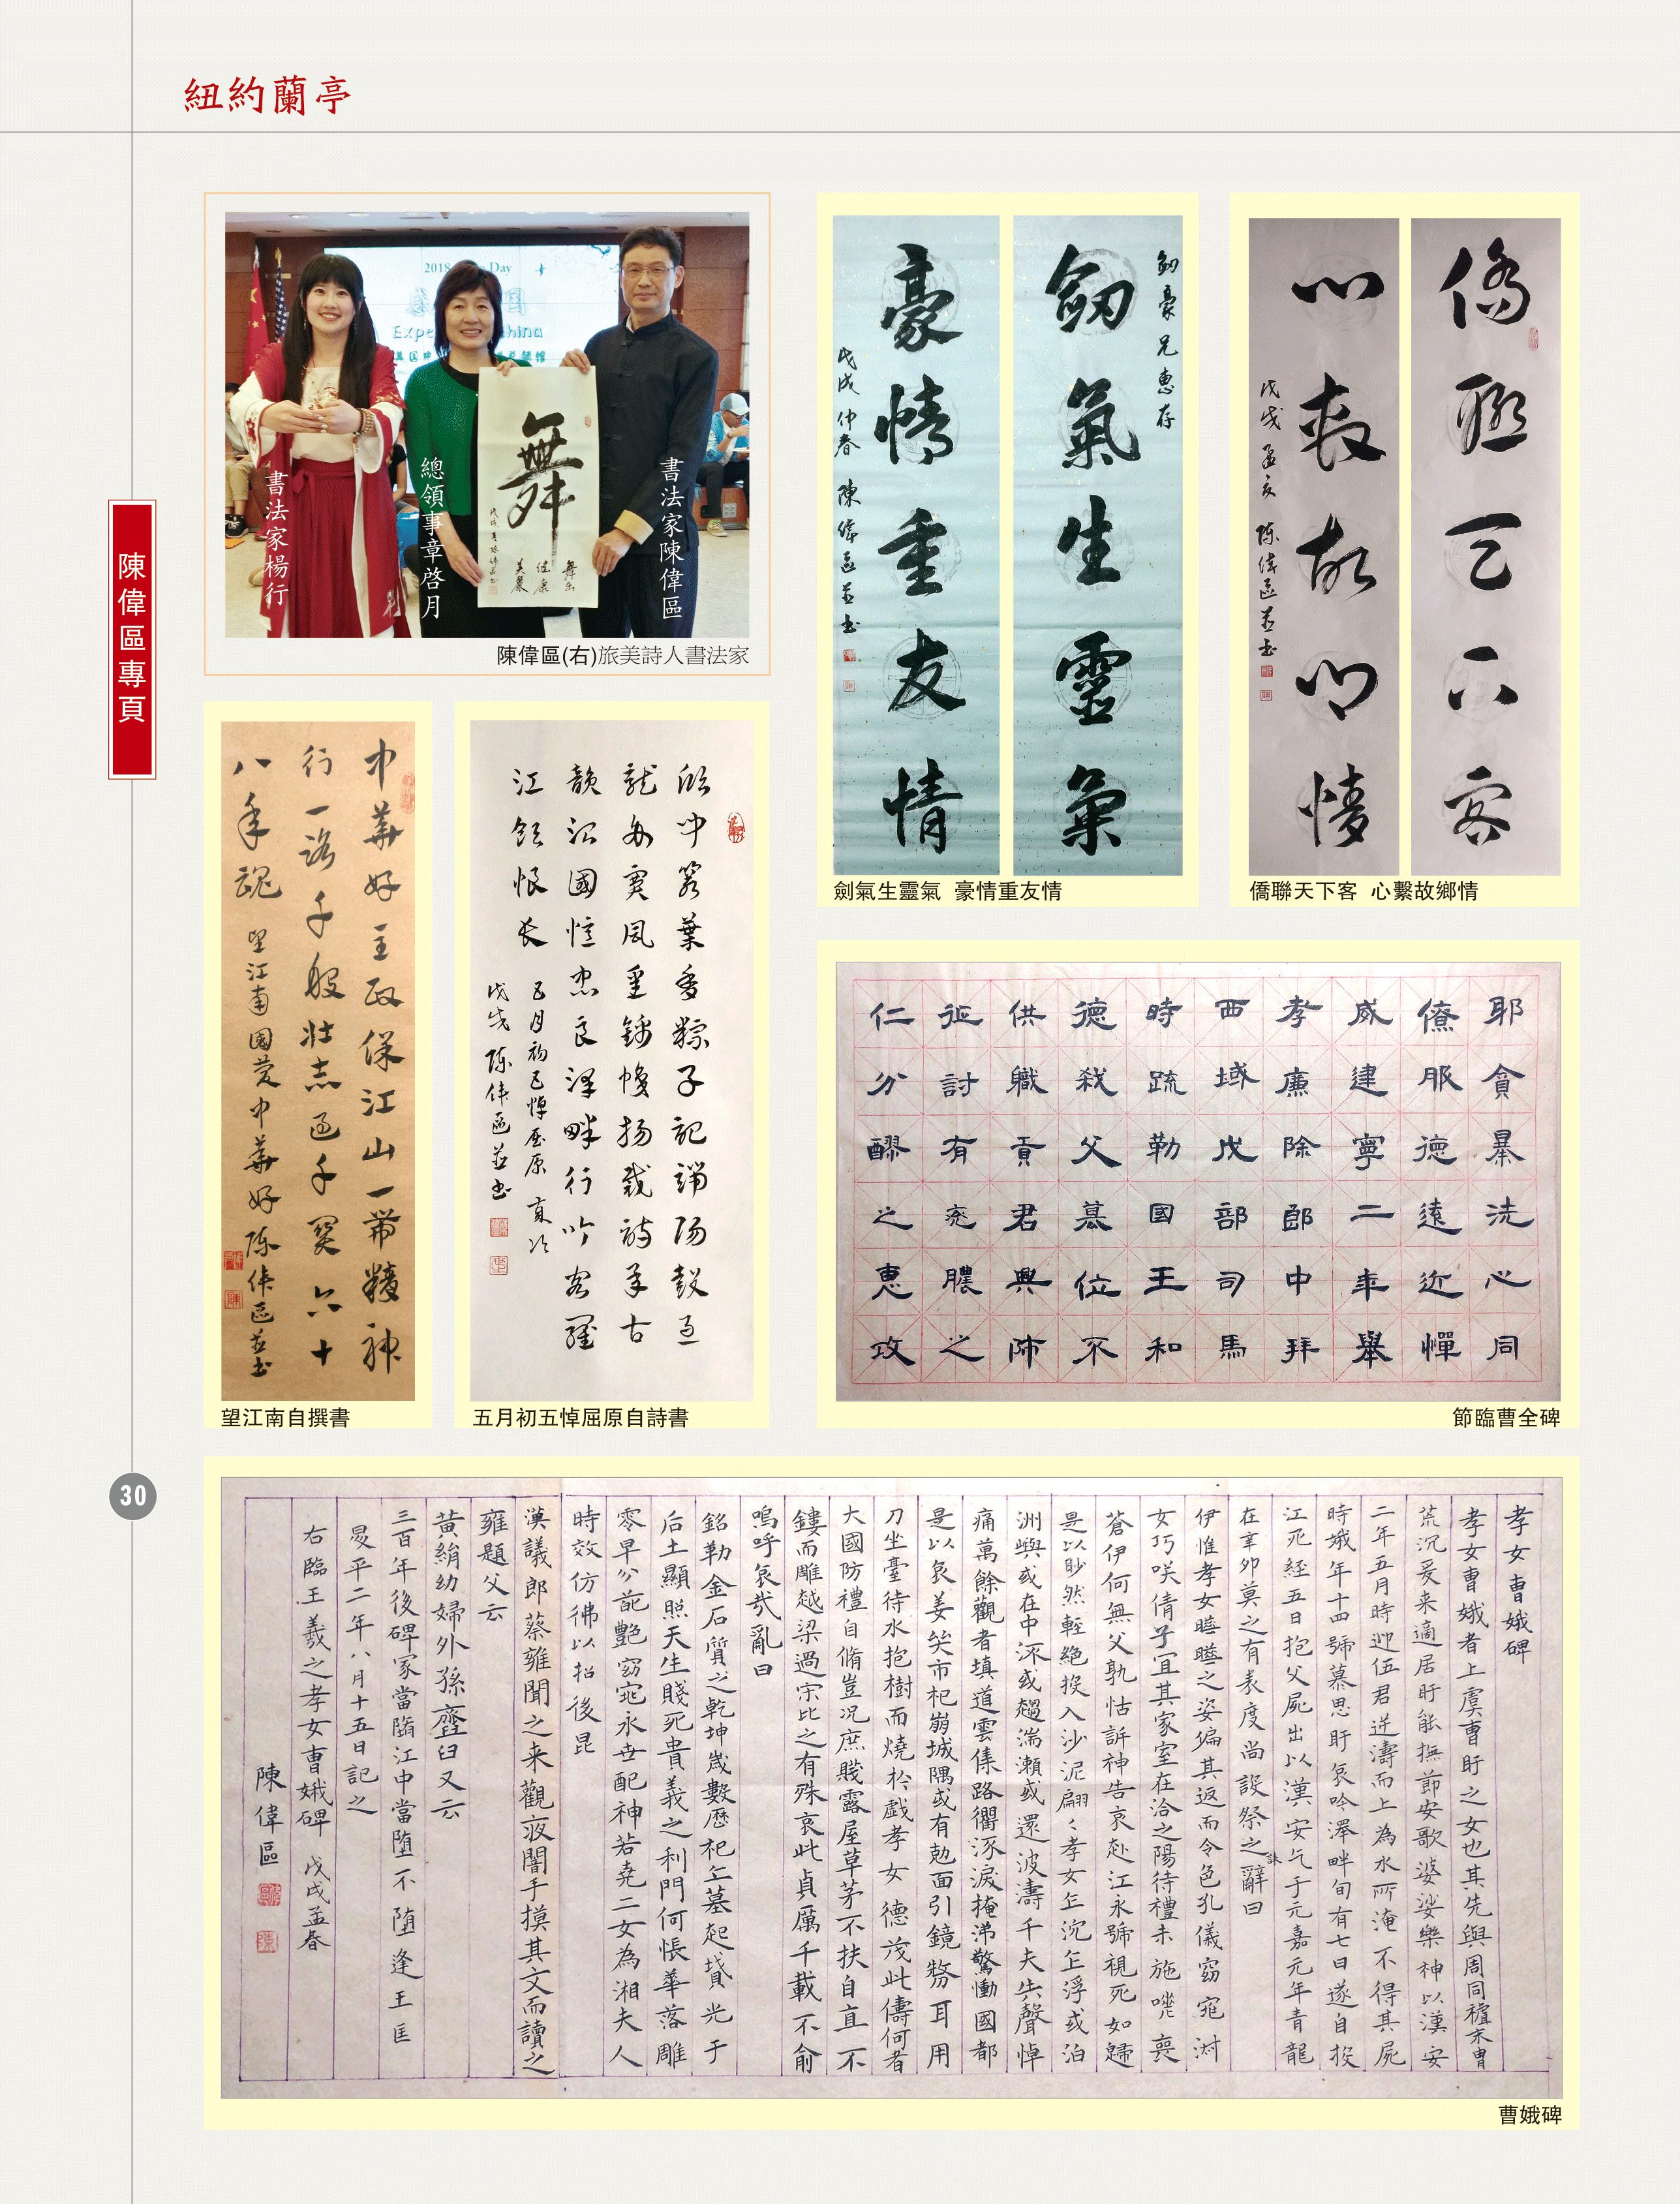 紐約蘭亭
陳偉區專頁
30
2018
Day
書法家楊行
總領事章啓月
書法家陳偉區
舞
陳偉區(右)旅美詩人書法家
劍豪兄惠存
劍氣生靈氣
豪情重友情
戊戌仲春 陳偉區並书
劍氣生靈氣 豪情重友情
僑聯天下客
心繫故鄉情
戊戌孟夏 陈偉區並书
僑聯天下客 心繫故鄉情
中華好主政保江山一帶精神
行一路千般壯志
八年魂 望江南國慶中華好陈偉區並书
望江南自撰書
葉香粽子記端陽鼓
江頭恨长
五月初五悼屈原
戊戌 陈偉區並书
五月初五悼屈原自詩書
耶貪暴洗心同
僚服德遠近憚
威建寧二年舉
孝廉除郎中拜
西域戊部司馬
時疏勒國王和
德殺父墓位不
供職貢君興師
征討有兖膿之
仁分醪之惠攻
節臨曹全碑
孝女曹娥碑
孝女曹娥者上虞曹盱之女也其先與周同禮末曹
荒沉爰来適居盱能撫節安歌婆娑樂神以漢安
二年五月時迎伍君逆濤而上為水所淹不得其屍
時娥年十四號慕思盱哀吟澤畔旬有七日遂自投
江死經五日抱父屍出以漢安乞于元嘉元年青龍
在辛卯莫之有表度尚設祭之誄辭曰
伊惟孝女曄曄之姿偏其返而令色孔儀窈窕淑
女巧咲倩子宜其家室在洽之陽待禮未施嗟喪
蒼伊何無父孰怙訴神告哀赴江永號視死如歸
是以眇然輕絶投入沙泥翩々孝女乍沉乍浮或泊
洲嶼或在中流或趨湍瀨或還波濤千夫失聲悼
痛萬餘觀者填道雲集路衢流淚掩涕驚慟國都
是以哀姜哭市杞崩城隅或有尅面引鏡剺耳用
刀坐臺待水抱樹而燒於戲孝女德茂此儔何者
大國防禮自脩豈况庶賤露屋草茅不扶自直不
鏤而雕越梁過宋比之有殊哀此貞厲千載不渝
嗚呼哀哉亂曰
銘勒金石質之乾坤歲數歷祀丘墓起墳光于
后土顯照天生賤死貴義之利門何悵華落雕
零早分葩艷窈窕永世配神若堯二女為湘夫人
時效仿彿以招後昆
漢議郎蔡雍聞之来觀夜闇手摸其文而讀之
雍題父云
黃絹幼婦外孫齏臼又云
三百年後碑冢當隋江中當墮不墮逢王匡
昇平二年八月十五日記之
右臨王羲之孝女曹娥碑 戊戌孟春
陳偉區
曹娥碑